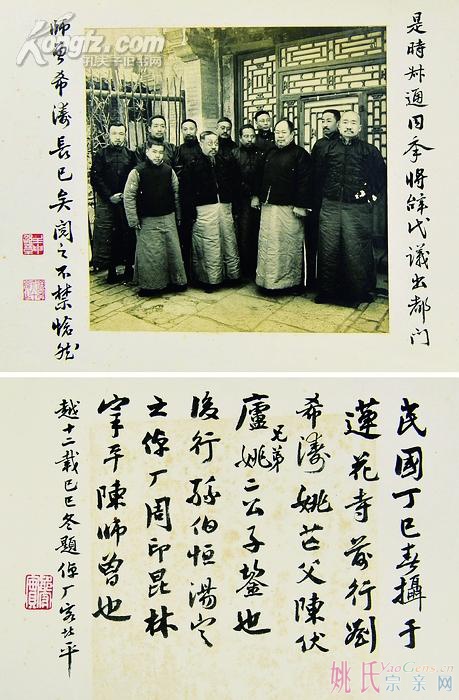 是時叔通將辭代議出都門
師曾希濤長已矣閱之不禁愴然
Kongfz.com
孔夫子旧书网
民國丁巳春攝于
蓮花寺前行劉
希濤姚芒父陳伏
廬兄弟姚二公子鋆也
後行孫伯恒湯定
之倬厂周印昆林
宰平陳師曾也
越十二載己巳冬題倬厂客北平
YaoGens.cn
姚氏宗亲网